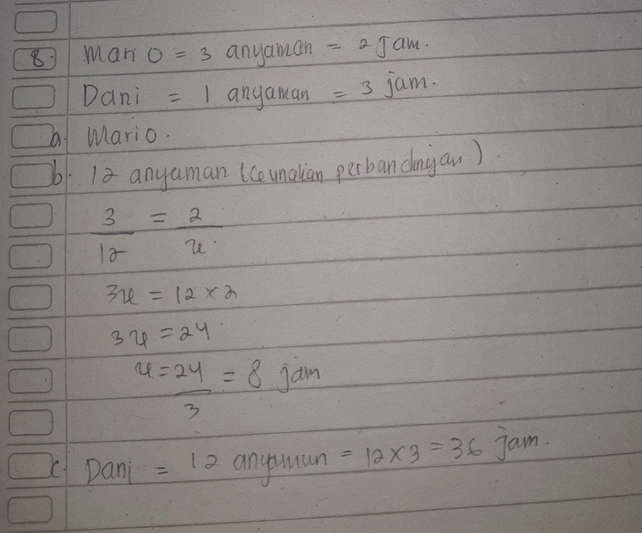 8. Mario = 3 anyaman = 2 Jam.
Dani = 1 anyaman = 3 jam.
a. Mario.
b. 12 anyaman (Ceunakan perbandingan).
3/12 = 2/x.
3x = 12 × 2
3x = 24
x = 24/3 = 8 jam
c. Dani = 12 anyaman = 12×3 = 36 jam.